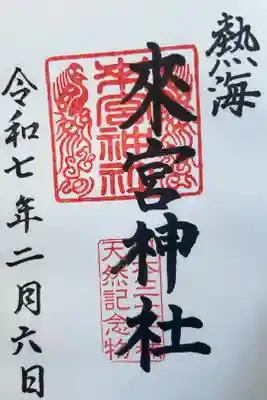 熱海
來宮神社
來宮神社
天然記念物
令和七年二月六日